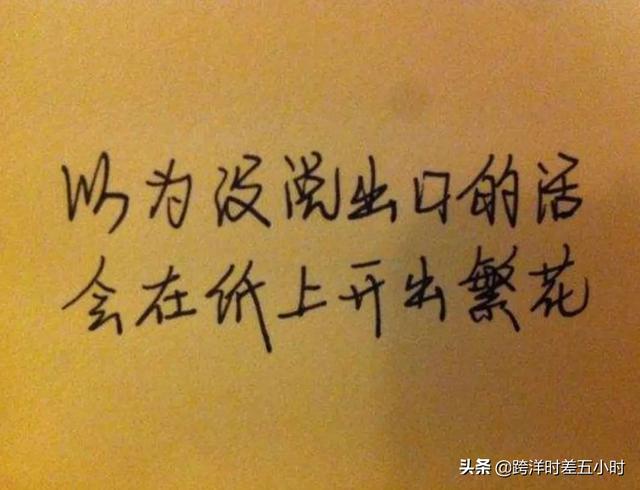 以为没说出口的话
会在纸上开出繁花
头条 @跨洋时差五小时